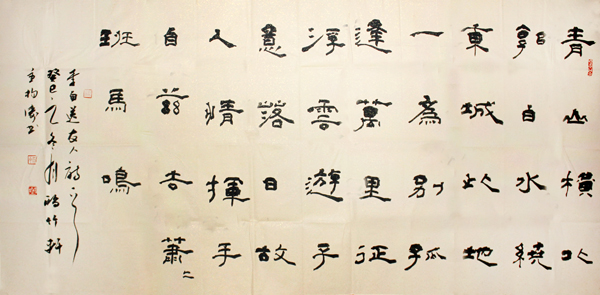 青山橫北
郭白水繞
東城此地
一為別孤
蓬萬里征
浮雲游子
意落日故
人情揮手
自茲去蕭〻
班馬鳴
李白送友人詩一首
癸巳之冬竹軒